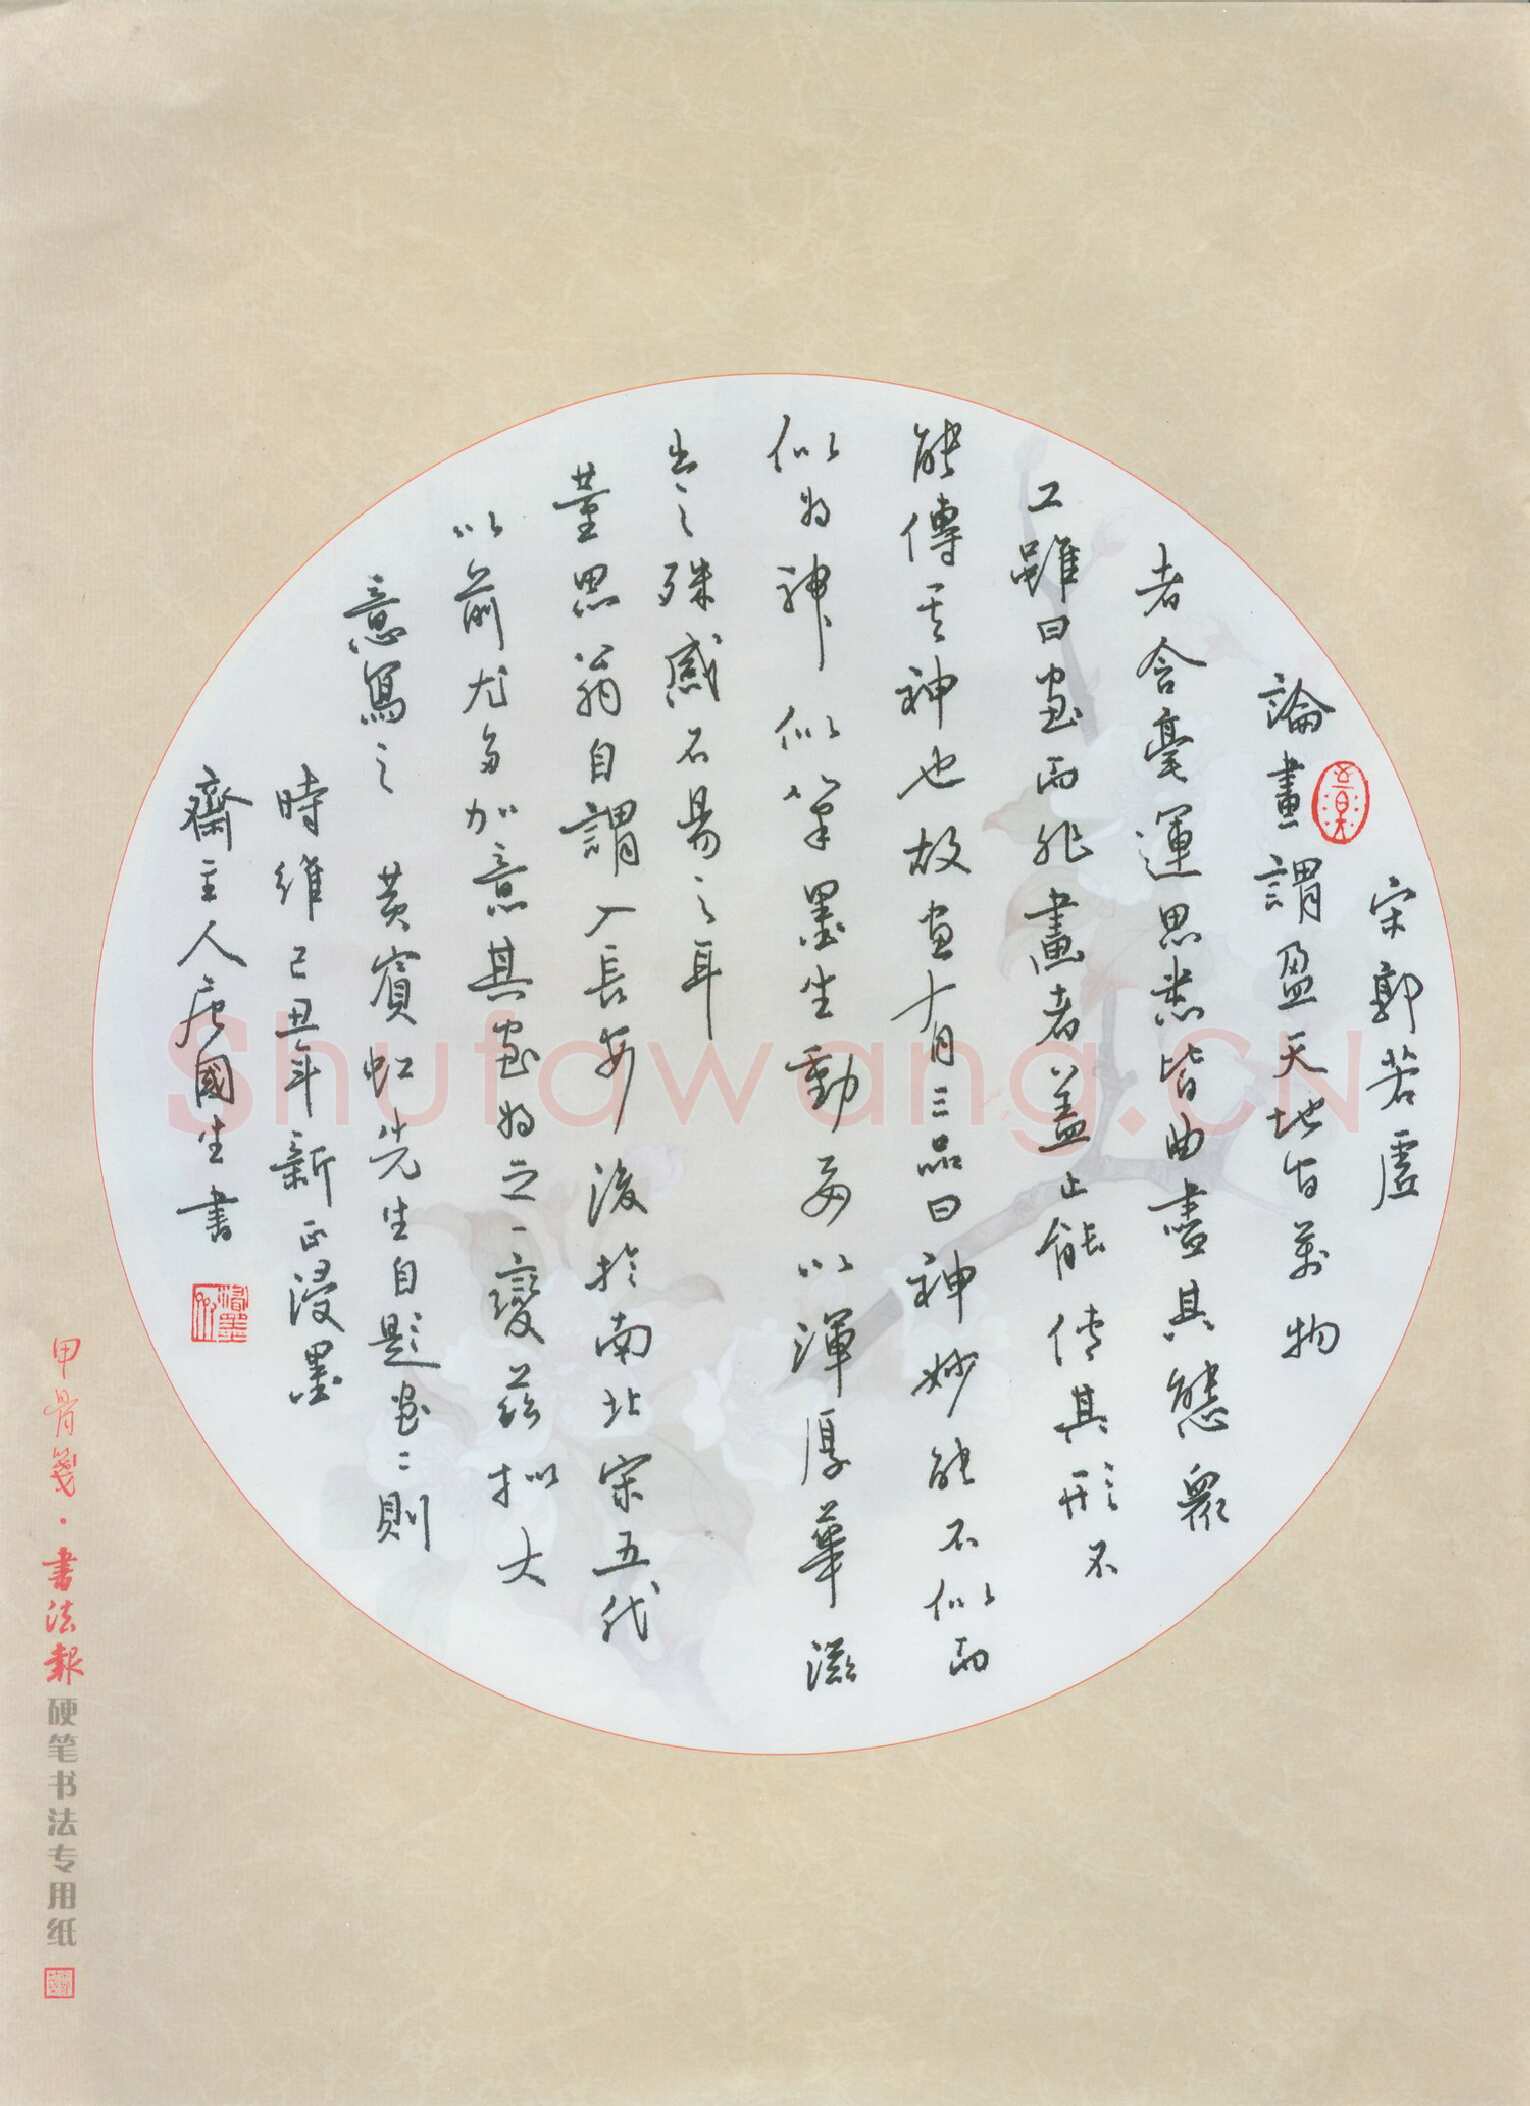 宋郭若虛
論畫謂盈天地皆萬物
者含毫運思悉皆曲盡其態眾
工雖曰畫而非畫者蓋止能傳其形不
能傳其神也故畫有三品曰神妙能不似而
似為神似以筆墨生動每以渾厚華滋
出之殊感不易之耳
董思翁自謂入長安後於南北宋五代
以前尤多加意其畫為之一變茲擬大
意寫之 黃賓虹先生自題畫二則
時維己丑年新正浸墨
齋主人居國生書
甲骨箋·書法報硬笔书法专用纸
Shufawang.CN